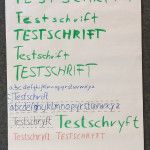 Testschrift
Testschrift
TESTSCHRIFT
Testschrift
TESTSCHRIFT
abcdefghijklmnopqrstuvwxyz
Testschrift
abcdefghijklmnopqrstuvwxyz
Testschryft Testschryft
Testschrift TESTSCHRYFT